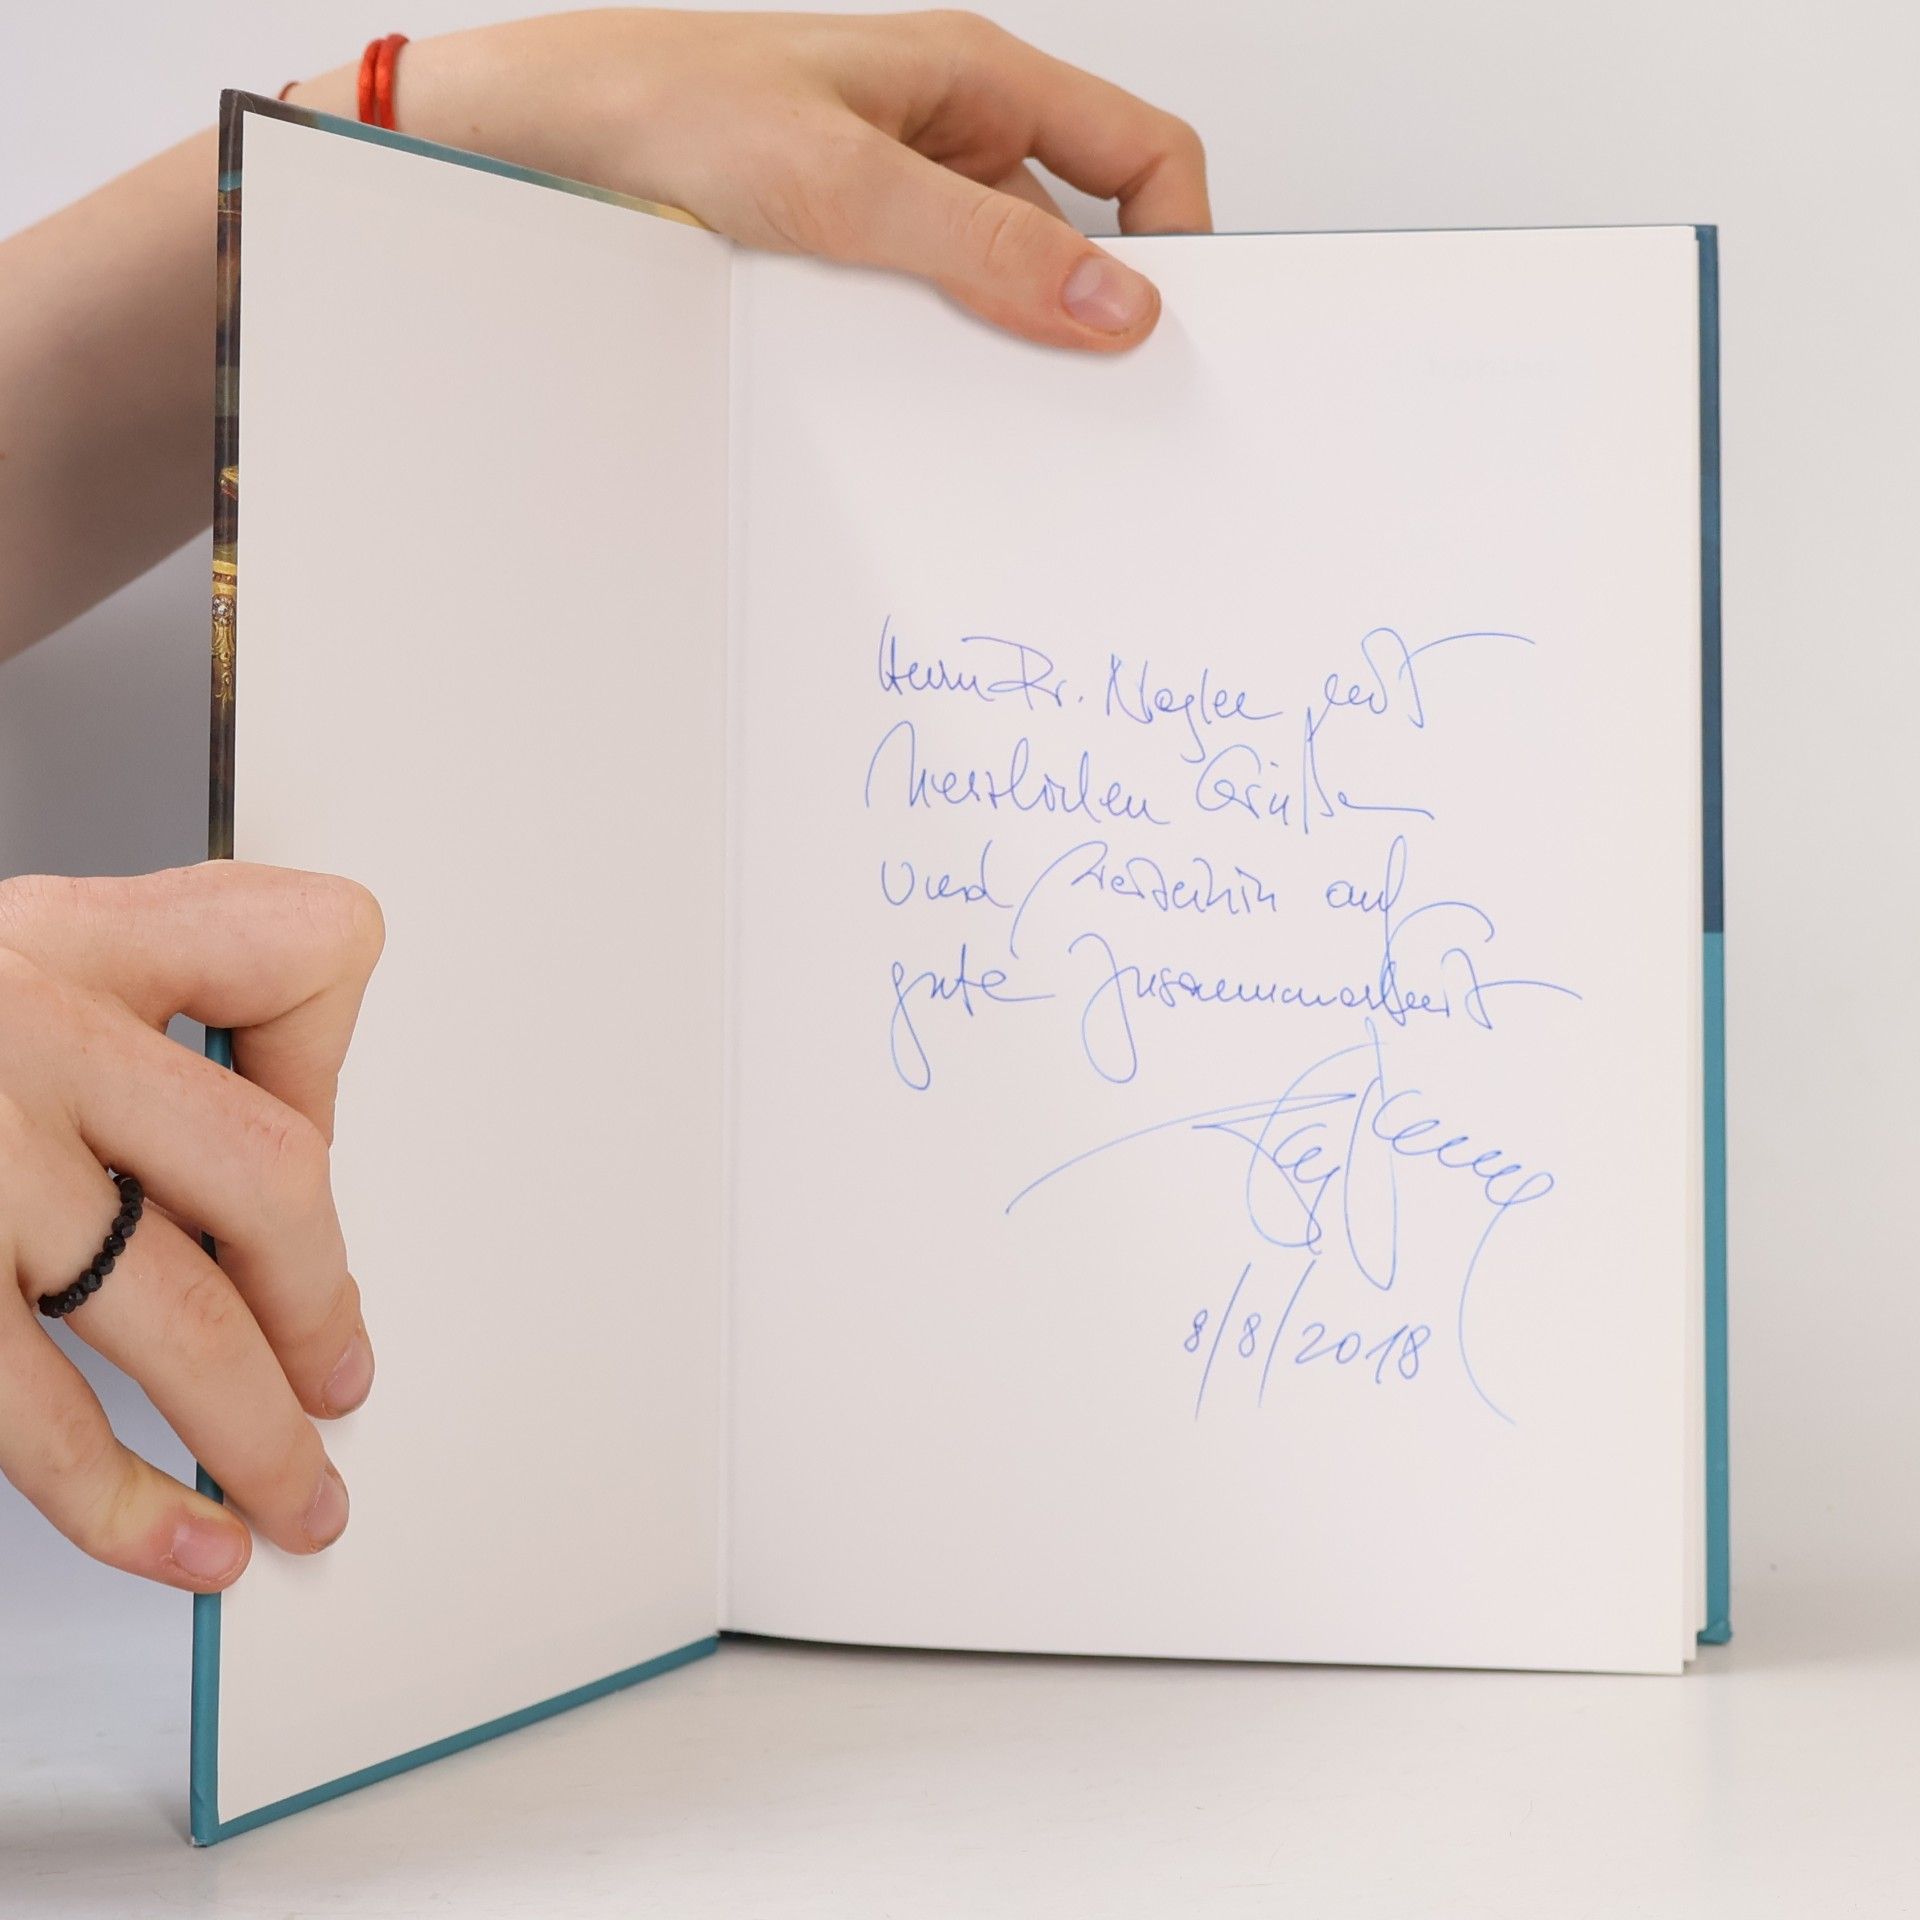 Herrn Dr. Nagler mit
herzlichen Grüßen
und weiterhin auf
gute Zusammenarbeit
8/8/2018